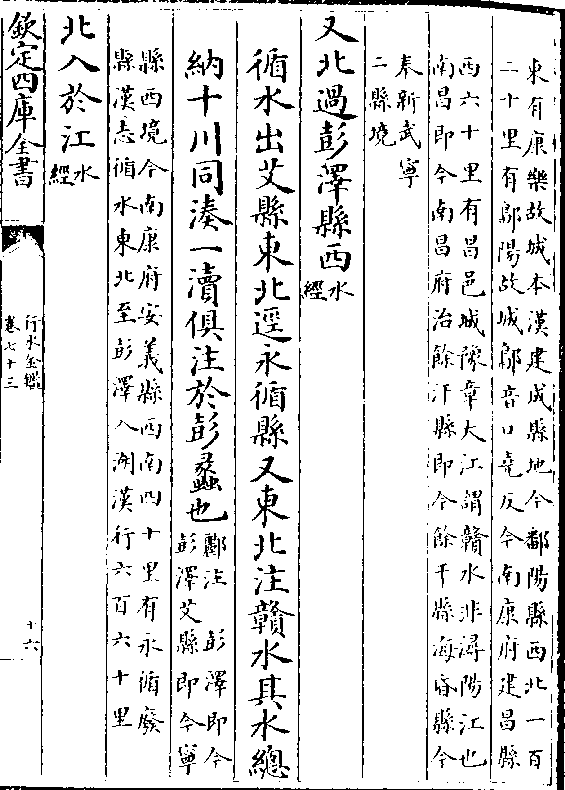 東有康樂故城本漢建成縣地今鄱陽縣西北一百
二十里有鄡陽故城鄡音口堯反今南康府建昌縣
西六十里有昌邑城豫章大江謂贛水非潯陽江也
南昌即今南昌府治餘汗縣即今餘干縣海昏縣今
奉新武寧
二縣境
又北過彭澤縣西水經
循水出艾縣東北逕永循縣又東北注贛水其水總
納十川同湊一瀆俱注於彭蠡也酈注 彭澤即今
彭澤艾縣即今寧
縣西境今南康府安義縣西南四十里有永循廢
縣漢志循水東北至彭澤入湖漢行六百六十里
北入於江水經
欽定四庫全書
行水金鑑
卷七十三
十六